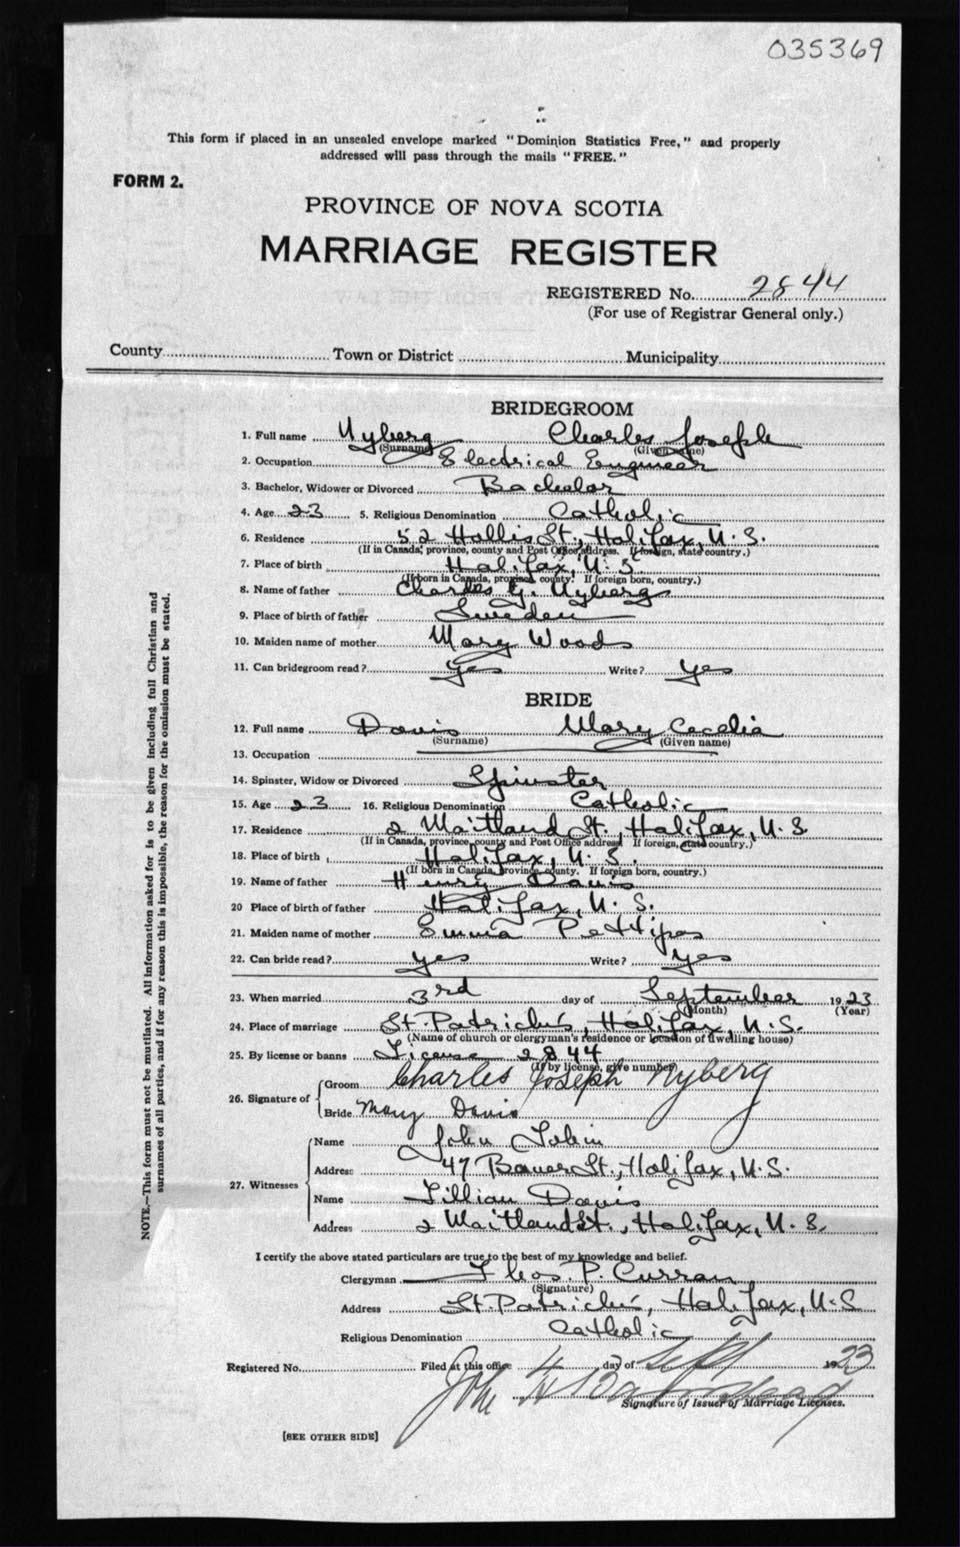 035369
This form if placed in an unsealed envelope marked "Dominion Statistics Free," and properly
addressed will pass through the mails "FREE."
FORM 2.
PROVINCE OF NOVA SCOTIA
MARRIAGE REGISTER
REGISTERED No. 2844
(For use of Registrar General only.)
County Town or District Municipality
BRIDEGROOM
1. Full name Nyberg Charles Joseph
(Surname) (Given name)
2. Occupation Electrical Engineer
3. Bachelor, Widower or Divorced Bachelor
4. Age 23 5. Religious Denomination Catholic
6. Residence 52 Hollis St., Halifax, N.S.
(If in Canada, province, county and Post Office address. If foreign, state country.)
7. Place of birth Halifax, N.S.
(If born in Canada, province, county. If foreign born, country.)
8. Name of father Charles G. Nyberg
9. Place of birth of father Sweden
10. Maiden name of mother Mary Woods
11. Can bridegroom read? Yes Write? Yes
BRIDE
12. Full name Davis Mary Cecelia
(Surname) (Given name)
13. Occupation
14. Spinster, Widow or Divorced Spinster
15. Age 23 16. Religious Denomination Catholic
17. Residence 2 Maitland St., Halifax, N.S.
(If in Canada, province, county and Post Office address. If foreign, state country.)
18. Place of birth Halifax, N.S.
(If born in Canada, province, county. If foreign born, country.)
19. Name of father Henry Davis
20 Place of birth of father Halifax, N.S.
21. Maiden name of mother Emma Pettipas
22. Can bride read? Yes Write? Yes
23. When married 3rd day of September 1923
(Month) (Year)
24. Place of marriage St. Patrick's, Halifax, N.S.
(Name of church or clergyman's residence or location of dwelling house)
25. By license or banns License 2844
(If by license, give number)
26. Signature of Groom Charles Joseph Nyberg
Bride Mary Davis
27. Witnesses Name John Tobin
Address 47 Bauer St., Halifax, N.S.
Name Lillian Davis
Address 2 Maitland St., Halifax, N.S.
I certify the above stated particulars are true to the best of my knowledge and belief.
Clergyman Thos. P. Curran
(Signature)
Address St. Patrick's, Halifax, N.S.
Religious Denomination Catholic
Registered No. Filed at this office 4 day of Sept 1923
John
Signature of Issuer of Marriage Licenses.
[SEE OTHER SIDE]
NOTE.—This form must not be mutilated. All information asked for is to be given including full Christian and
surnames of all parties, and if for any reason this is impossible, the reason for the omission must be stated.